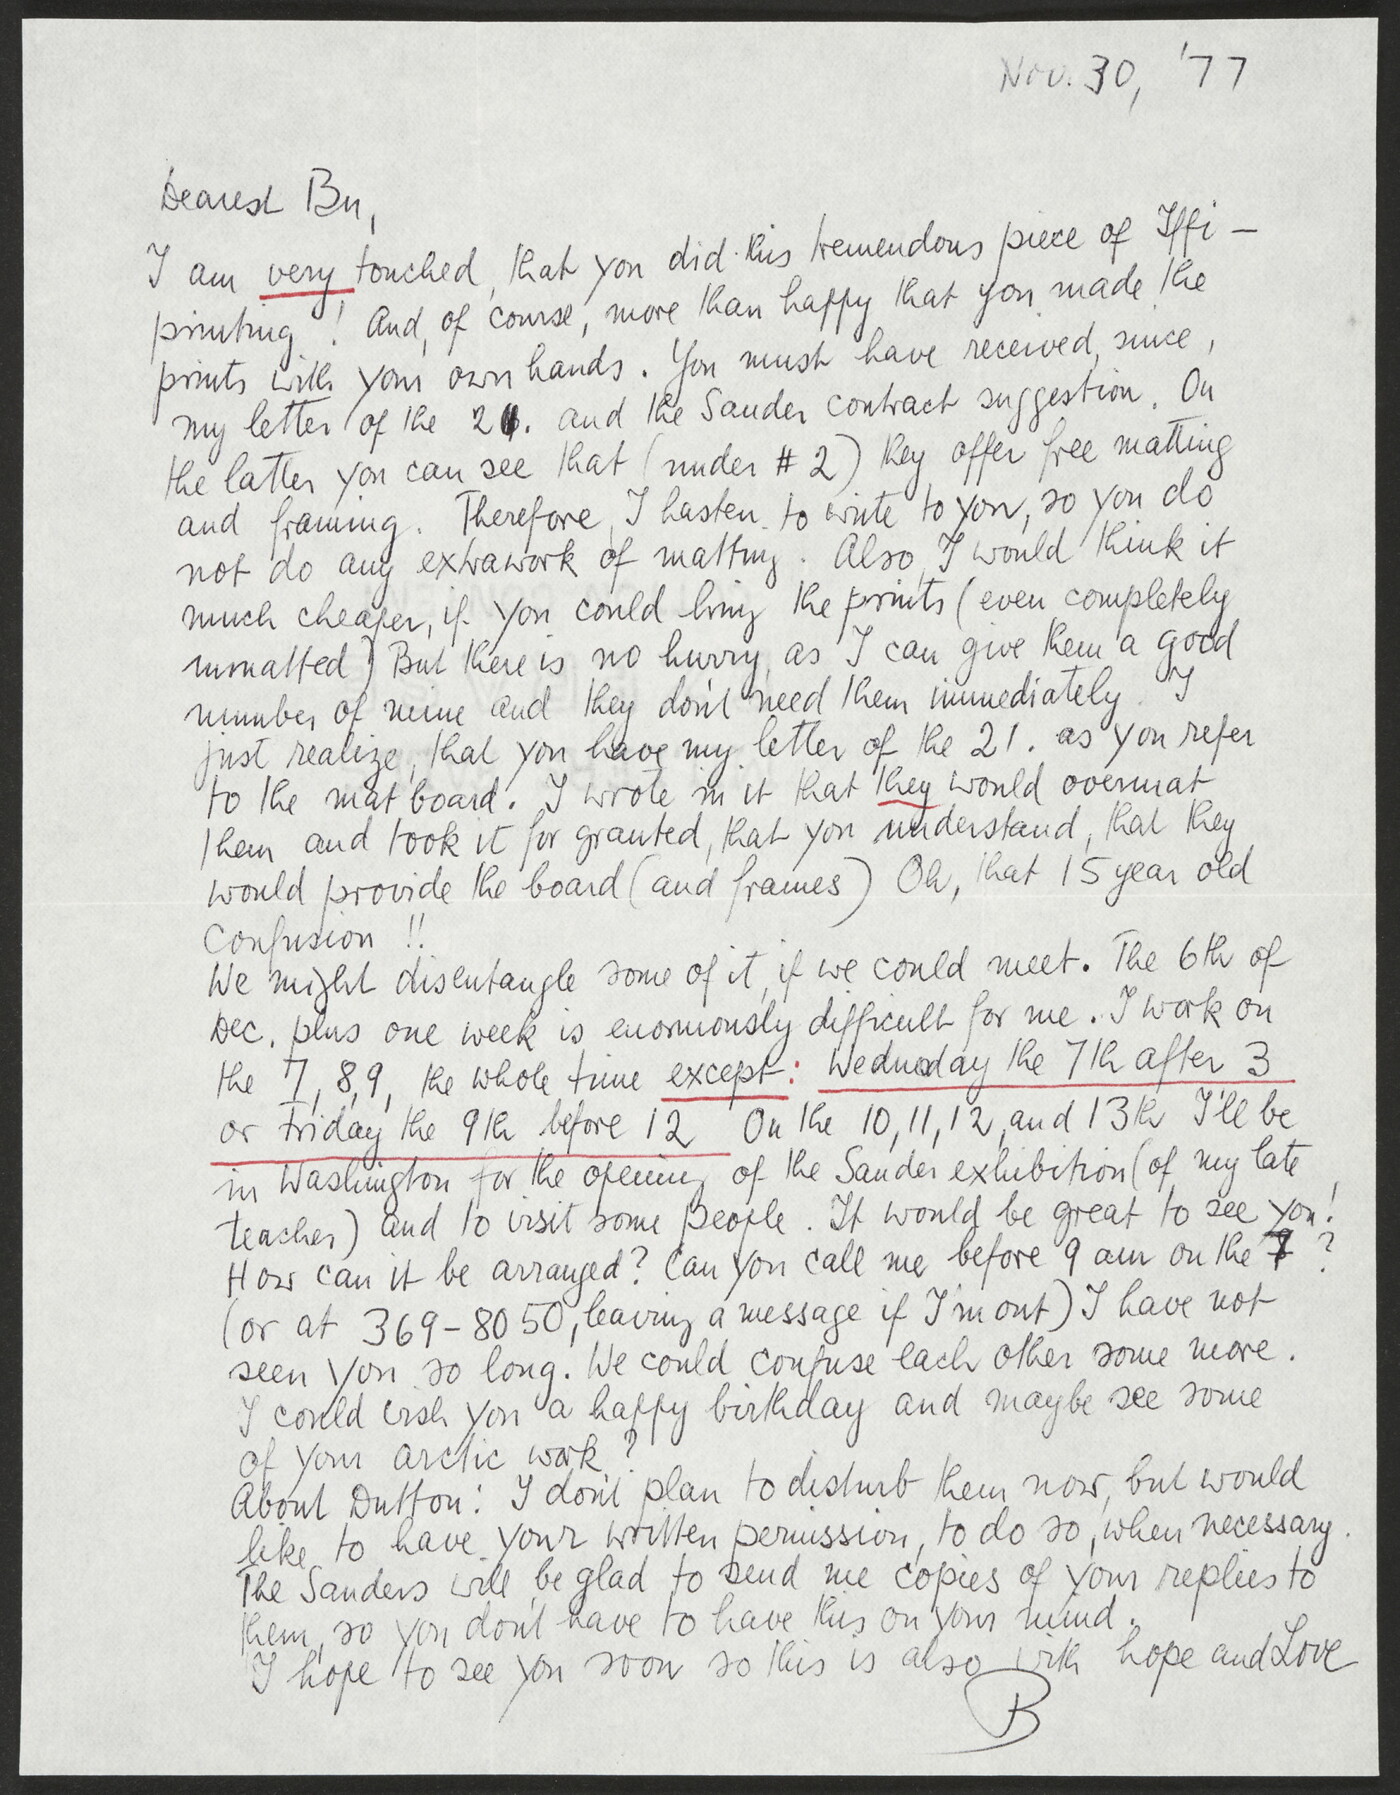 Nov. 30, '77
Dearest Bu,
I am very touched, that you did this tremendous piece of Iffi-
printing! And, of course, more than happy that you made the
prints with your own hands. You must have received, since,
my letter of the 21. and the Sander contract suggestion. On
the latter you can see that (under #2) they offer free matting
and framing. Therefore, I hasten to write to you, so you do
not do any extrawork of matting. Also, I would think it
much cheaper, if you could bring the prints (even completely
unmatted) But there is no hurry, as I can give them a good
number of mine and they don't need them immediately. I
just realize, that you have my letter of the 21. as you refer
to the mat board. I wrote in it that they would overmat
them and took it for granted, that you understand, that they
would provide the board (and frames) Oh, that 15 year old
confusion!!
We might disentangle some of it, if we could meet. The 6th of
Dec. plus one week is enormously difficult for me. I work on
the 7, 8, 9, the whole time except: Wednesday the 7th after 3
or Friday the 9th before 12 On the 10, 11, 12, and 13th I'll be
in Washington for the opening of the Sander exhibition (of my late
teacher) and to visit some people. It would be great to see you!
How can it be arranged? Can you call me before 9 am on the 7?
(or at 369-8050, leaving a message if I'm out) I have not
seen you so long. We could confuse each other some more.
I could wish you a happy birthday and maybe see some
of your arctic work?
About Dutton: I don't plan to disturb them now, but would
like to have your written permission, to do so, when necessary.
The Sanders will be glad to send me copies of your replies to
them, so you don't have to have this on your mind.
I hope to see you soon so this is also with hope and Love
B